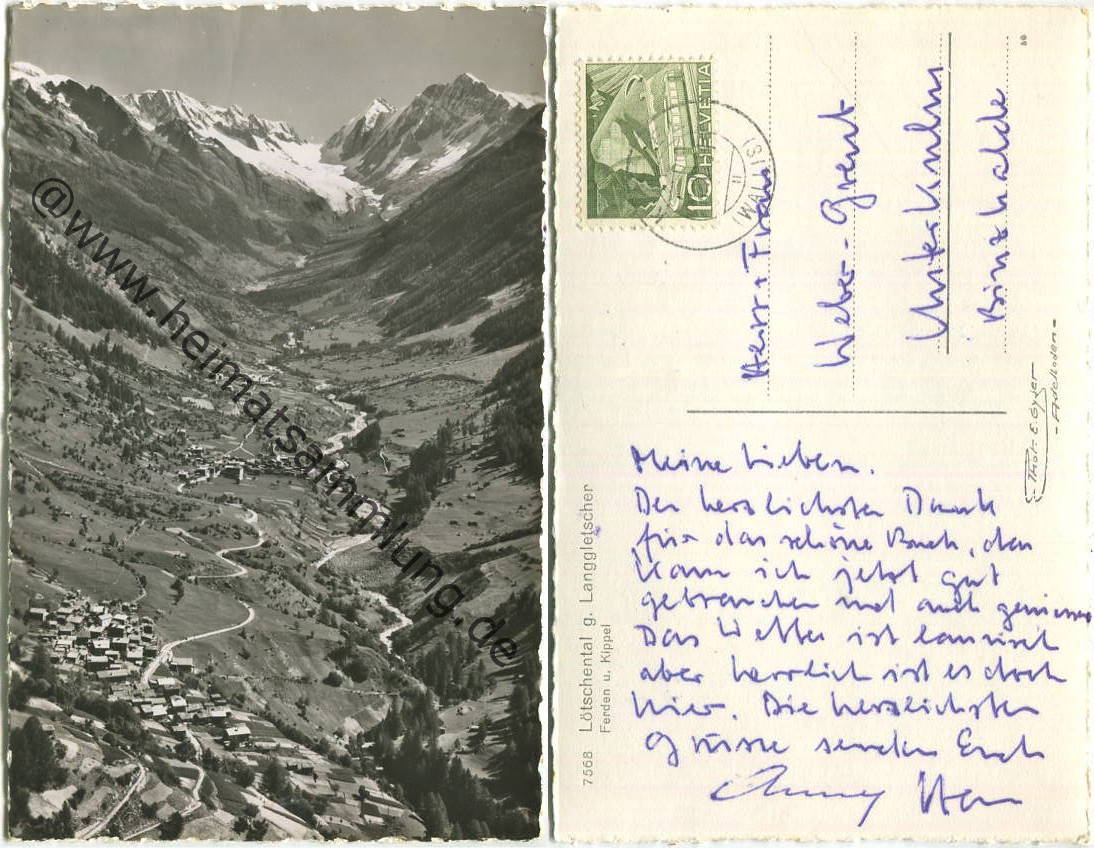 @www.heimatsammlung.de
10 HELVETIA
(WALLIS)
Herr + Frau
Weber-
Unterkulm
Binzhalde
Phot. E. Gyger
- Adelboden -
7568 Lötschental g. Langgletscher
Ferden u. Kippel
Meine Lieben.
Den herzlichsten Dank
für das schöne Buch, den
kann ich jetzt gut
gebrauchen und auch geniessen
Das Wetter ist launisch
aber herrlich ist es doch
hier. Die herzlichsten
Grüsse senden Euch